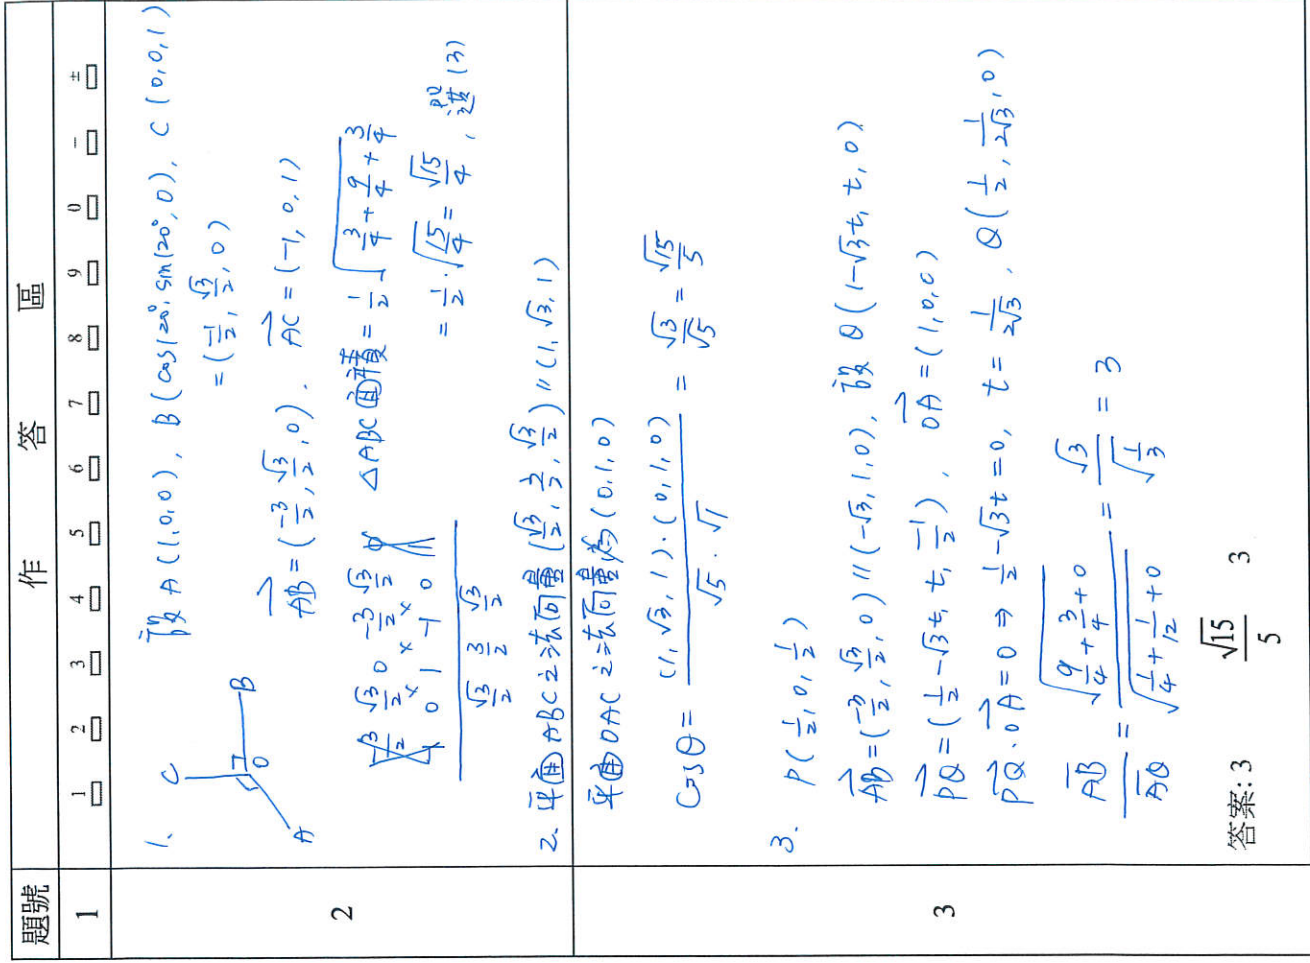 題號 作答區
1 1 2 3 4 5 6 7 8 9 0 - ±
2
1. 設A(1,0,0), B(cos120°, sin120°, 0), C(0,0,1)
=(-1/2, √3/2, 0)
C
B
O
A
AB=(-3/2, √3/2, 0). AC=(-1,0,1)
-3/2 √3/2 0 -3/2 √3/2 0
-1 0 1 -1 0 1
√3/2 3/2 √3/2
△ABC面積=1/2√(3/4+9/4+3/4)
=1/2·√(15/4)=√15/4, 故選(3)
2. 平面ABC之法向量(√3/2, 3/2, √3/2)//(1,√3,1)
3
平面OAC之法向量為(0,1,0)
cosθ=(1,√3,1)·(0,1,0)/(√5·√1)=√3/√5=√15/5
3. P(1/2, 0, 1/2)
AB=(-3/2, √3/2, 0)//(-√3,1,0), 設Q(1-√3t, t, 0)
PQ=(1/2-√3t, t, -1/2), OA=(1,0,0)
PQ·OA=0⇒1/2-√3t=0, t=1/(2√3), Q(1/2, 1/(2√3), 0)
AB/AQ=√(9/4+3/4+0)/√(1/4+1/12+0)=√3/√(1/3)=3
答案:3 √15/5 3